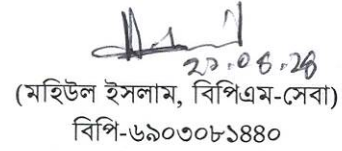 (মহিউল ইসলাম, বিপিএম-সেবা)
বিপি-৬৯০৩০৮১৪৪০